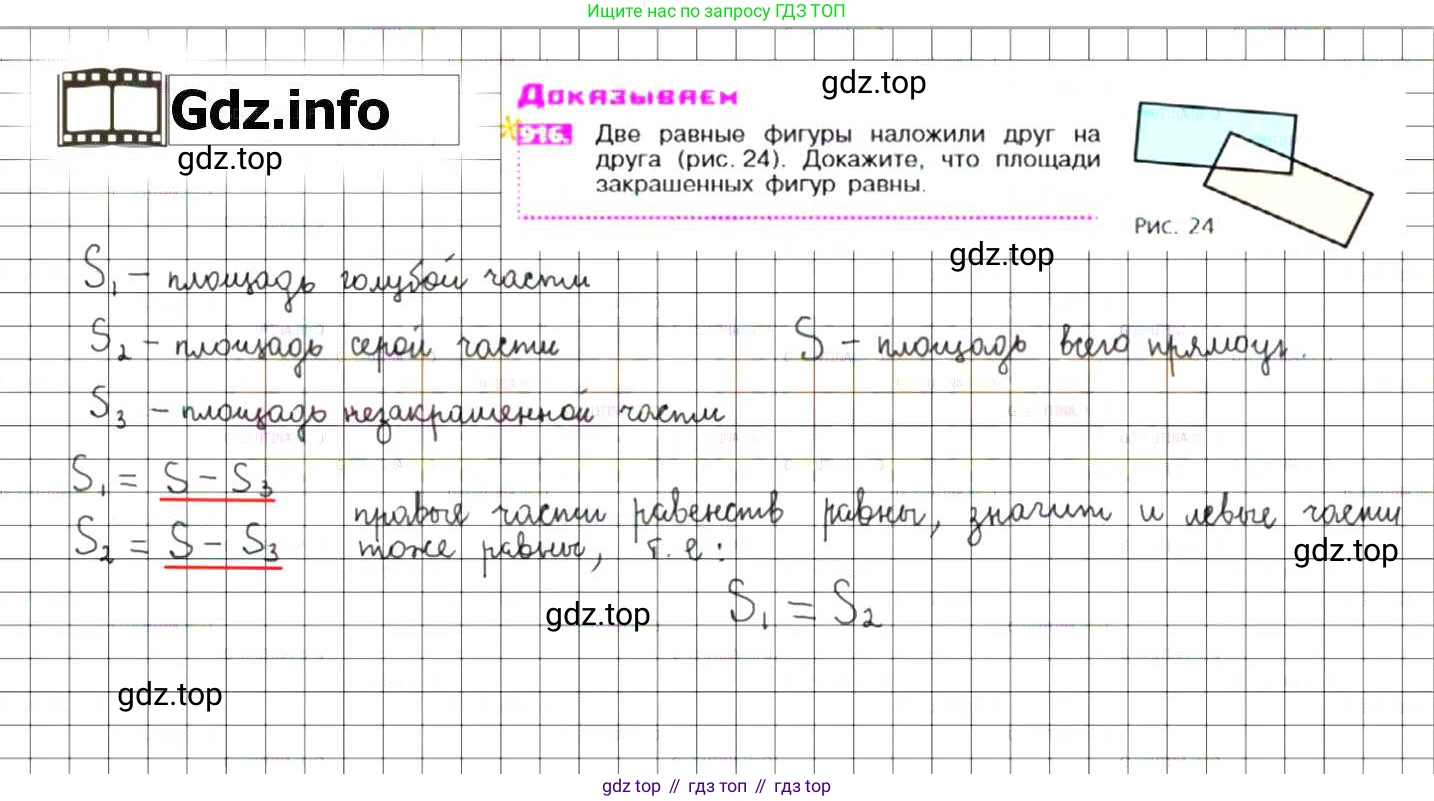 Ищите нас по запросу ГДЗ ТОП
Gdz.info
gdz.top
Доказываем
gdz.top
916. Две равные фигуры наложили друг на
друга (рис. 24). Докажите, что площади
закрашенных фигур равны.
Рис. 24
gdz.top
S₁ – площадь голубой части
S₂ – площадь серой части
S – площадь всего прямоуг.
S₃ – площадь незакрашенной части
S₁ = S – S₃
S₂ = S – S₃
правые части равенств равны, значит и левые части
тоже равны, т. е:
gdz.top
gdz.top
S₁ = S₂
gdz.top
gdz top // гдз топ // гдз top